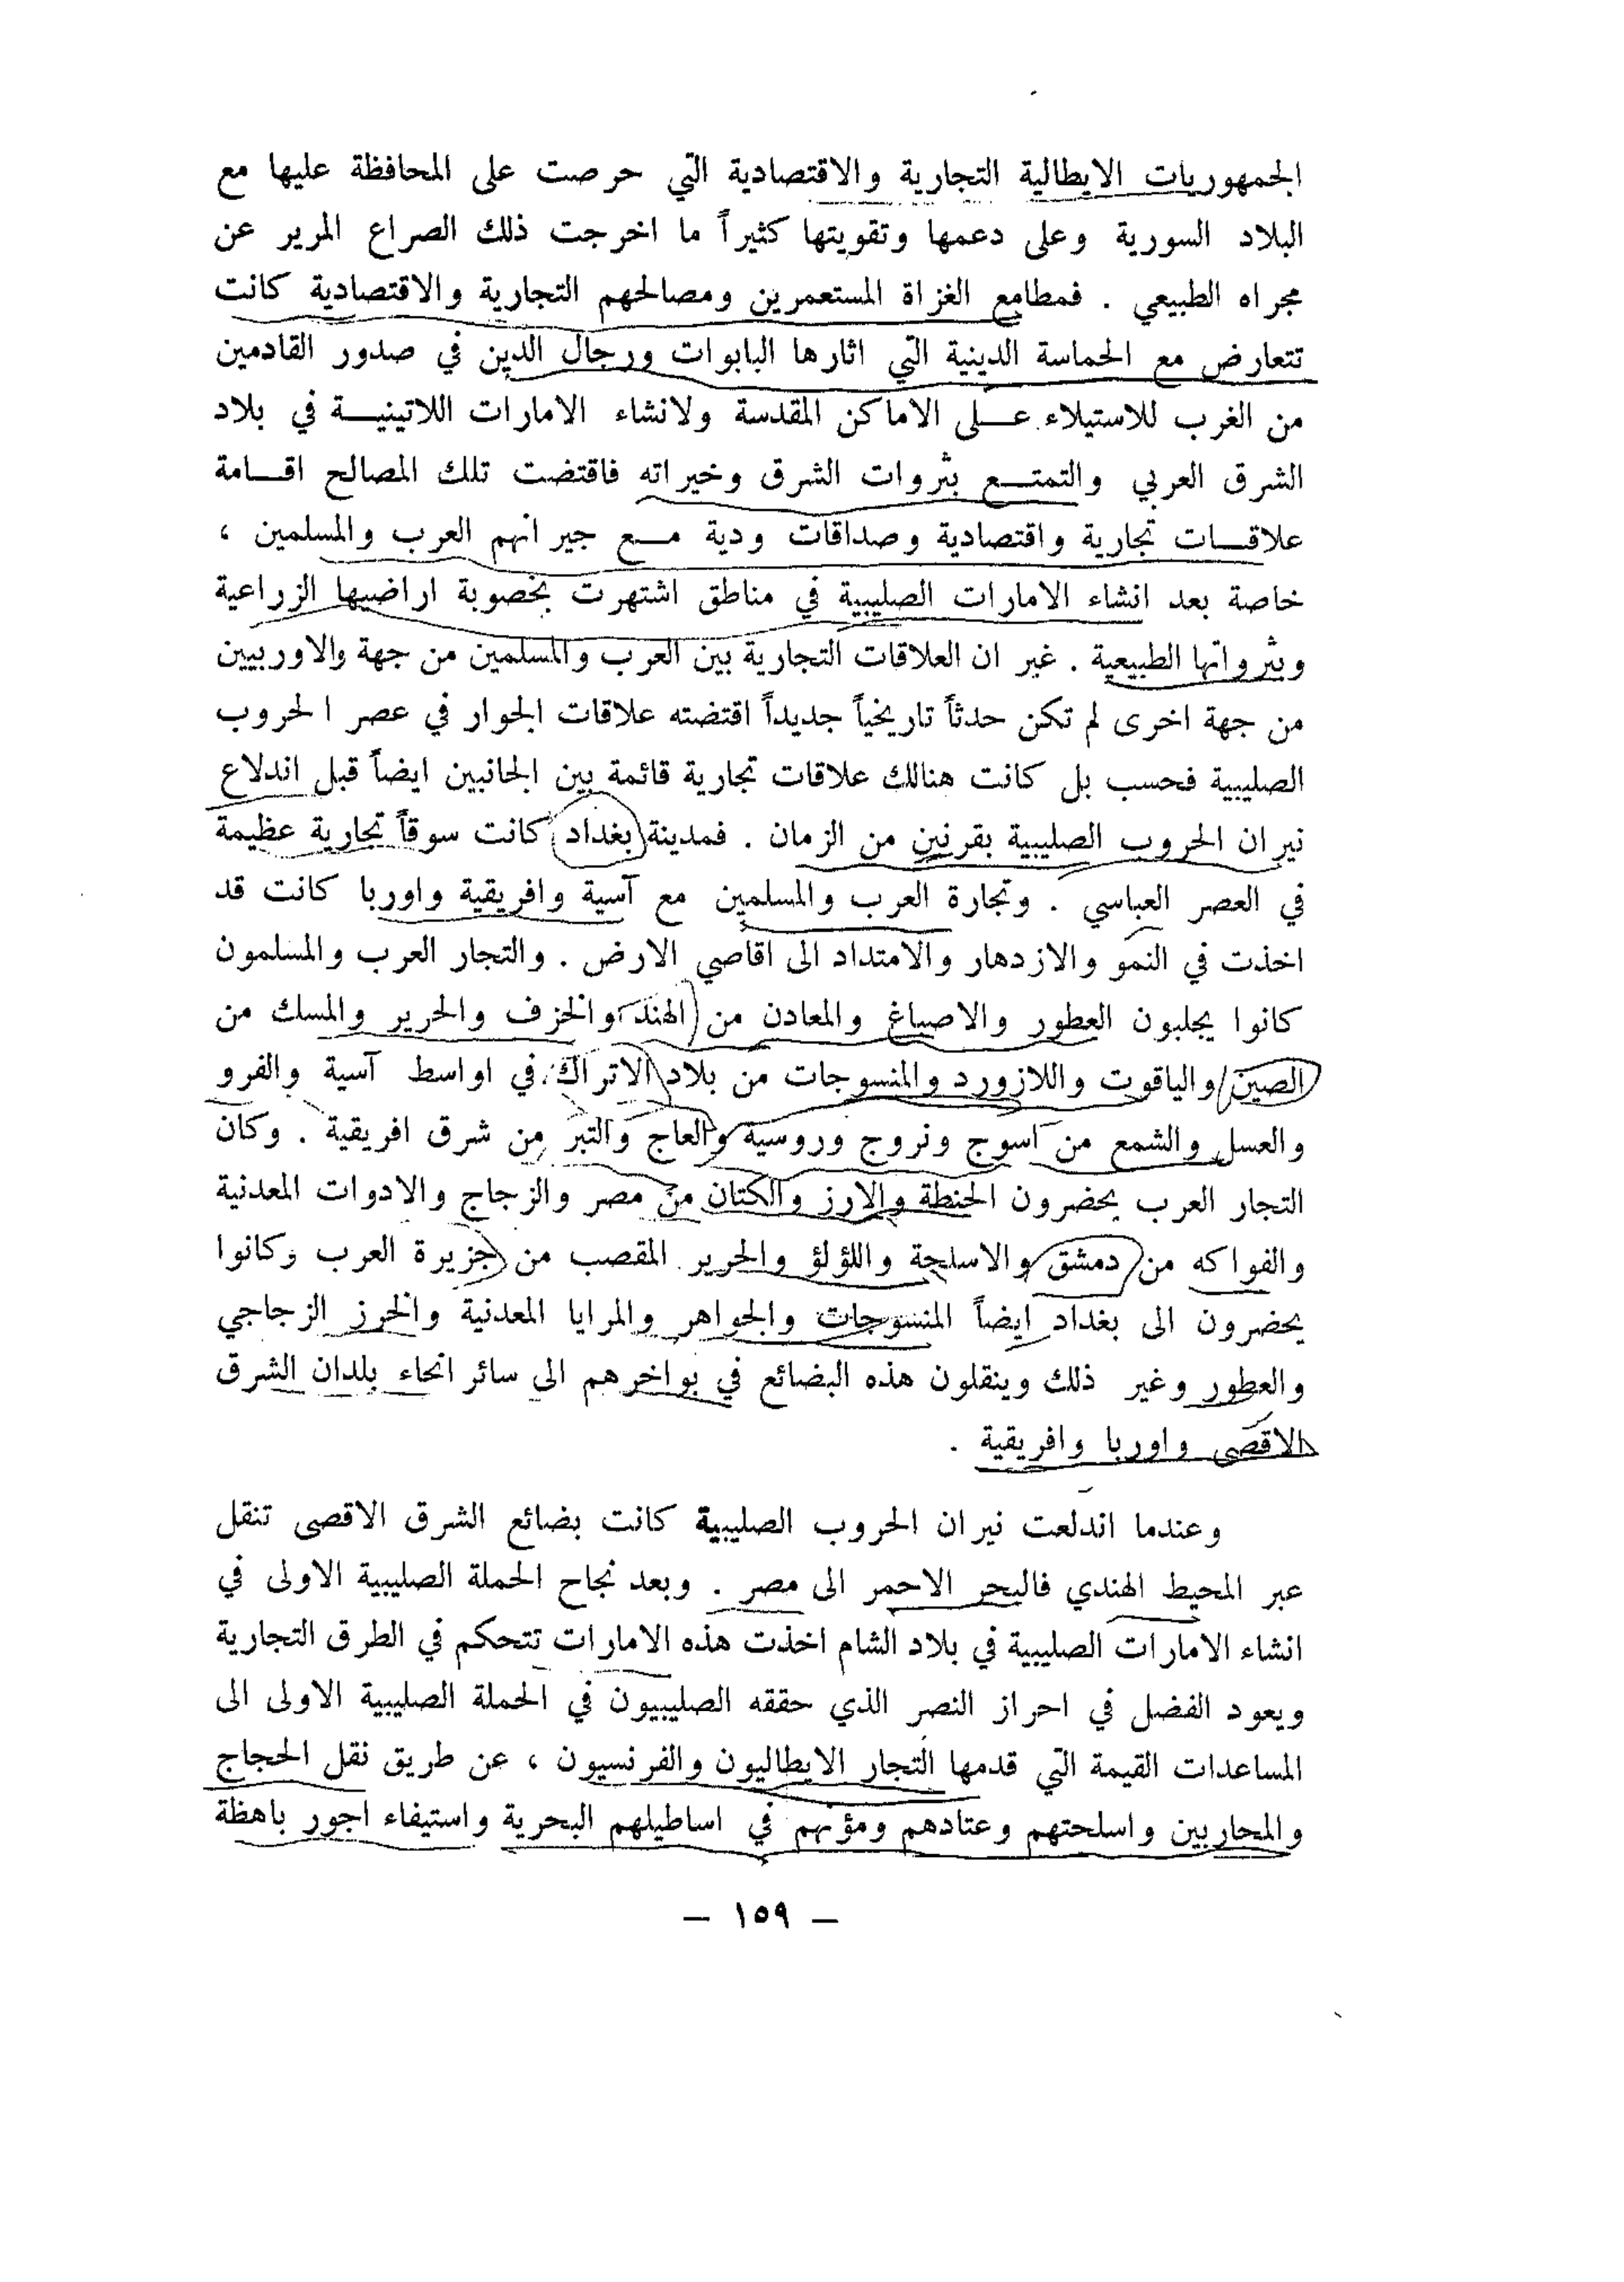 الجمهوريات الايطالية التجارية والاقتصادية التي حرصت على المحافظة عليها مع
البلاد السورية وعلى دعمها وتقويتها كثيراً ما اخرجت ذلك الصراع المرير عن
مجراه الطبيعي . فمطامع الغزاة المستعمرين ومصالحهم التجارية والاقتصادية كانت
تتعارض مع الحماسة الدينية التي اثارها البابوات ورجال الدين في صدور القادمين
من الغرب للاستيلاء عـــلى الاماكن المقدسة ولانشاء الامارات اللاتينيـــة في بلاد
الشرق العربي والتمتـــع بثروات الشرق وخيراته فاقتضت تلك المصالح اقـــامة
علاقـــات تجارية واقتصادية وصداقات ودية مـــع جيرانهم العرب والمسلمين ،
خاصة بعد انشاء الامارات الصليبية في مناطق اشتهرت بخصوبة اراضيها الزراعية
وبثرواتها الطبيعية . غير ان العلاقات التجارية بين العرب والمسلمين من جهة والاوربيين
من جهة اخرى لم تكن حدثاً تاريخياً جديداً اقتضته علاقات الجوار في عصر الحروب
الصليبية فحسب بل كانت هنالك علاقات تجارية قائمة بين الجانبين ايضاً قبل اندلاع
نيران الحروب الصليبية بقرنين من الزمان . فمدينة بغداد كانت سوقاً تجارية عظيمة
في العصر العباسي . وتجارة العرب والمسلمين مع آسية وافريقية واوربا كانت قد
اخذت في النمو والازدهار والامتداد الى اقاصي الارض . والتجار العرب والمسلمون
كانوا يجلبون العطور والاصباغ والمعادن من الهند والخزف والحرير والمسك من
الصين والياقوت واللازورد والمنسوجات من بلاد الاتراك في اواسط آسية والفرو
والعسل والشمع من اسوج ونروج وروسية والعاج والتبر من شرق افريقية . وكان
التجار العرب يحضرون الحنطة والارز والكتان من مصر والزجاج والادوات المعدنية
والفواكه من دمشق والاسلحة واللؤلؤ والحرير المقصب من جزيرة العرب وكانوا
يحضرون الى بغداد ايضاً المنسوجات والجواهر والمرايا المعدنية والخرز الزجاجي
والعطور وغير ذلك وينقلون هذه البضائع في بواخرهم الى سائر انحاء بلدان الشرق
الاقصى واوربا وافريقية .
وعندما اندلعت نيران الحروب الصليبية كانت بضائع الشرق الاقصى تنقل
عبر المحيط الهندي فالبحر الاحمر الى مصر . وبعد نجاح الحملة الصليبية الاولى في
انشاء الامارات الصليبية في بلاد الشام اخذت هذه الامارات تتحكم في الطرق التجارية
ويعود الفضل في احراز النصر الذي حققه الصليبيون في الحملة الصليبية الاولى الى
المساعدات القيمة التي قدمها التجار الايطاليون والفرنسيون ، عن طريق نقل الحجاج
والمحاربين واسلحتهم وعتادهم ومؤنهم في اساطيلهم البحرية واستيفاء اجور باهظة
— ١٥٩ —